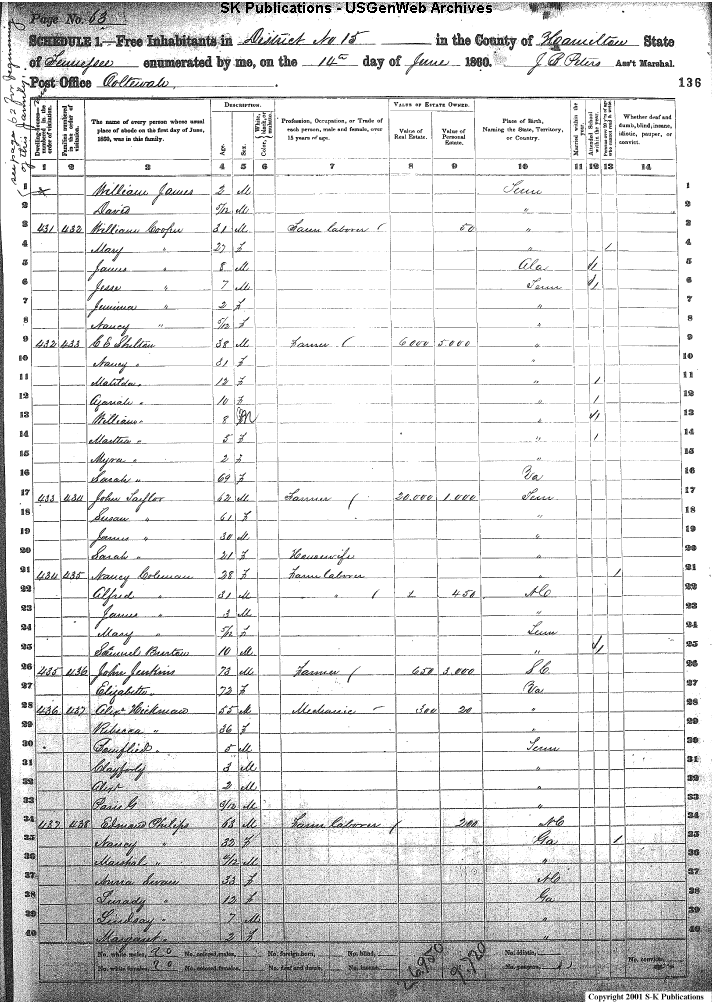 SK Publications - USGenWeb Archives
Page No. 63
SCHEDULE 1.—Free Inhabitants in District No 15 in the County of Hamilton State
of Tennessee enumerated by me, on the 14th day of June 1860. J. B. Peters Ass't Marshal.
Post Office Coltewah
136
see page 62 for beginning of this family.
DESCRIPTION. VALUE OF ESTATE OWNED.
The name of every person whose usual place of abode on the first day of June, 1860, was in this family.
Age. Sex.
Profession, Occupation, or Trade of each person, male and female, over 15 years of age.
Value of Real Estate. Value of Personal Estate.
Place of Birth, Naming the State, Territory, or Country.
Whether deaf and dumb, blind, insane, idiotic, pauper, or convict.
1 2 3 4 5 6 7 8 9 10 11 12 13 14
William James 2 M Tenn 1
2 David 5/12 M " 2
3 431 432 William Cooper 31 M Farm laborer 50 " 3
4 Mary " 27 f " 1 4
5 James " 8 M Ala 1 5
6 Jesse " 7 M Tenn 1 6
7 Jemima " 2 f " 7
8 Nancy " 5/12 f " 8
9 432 433 C E Shelton 38 M Farmer 6000 5.000 " 9
10 Nancy " 31 f " 10
11 Matilda " 12 f " 1 11
12 10 f " 1 12
13 William " 8 M " 1 13
14 Martha " 5 f " 1 14
15 Myra " 2 f " 15
16 Sarah " 69 f Va 16
17 433 434 John Taylor 62 M Farmer 20.000 1.000 Tenn 17
18 Susan " 61 f " 18
19 James " 30 M " 19
20 Sarah " 21 f Housewife " 20
21 434 435 Nancy Coleman 28 f Farm labover " 1 21
22 Alfred " 31 M " " 450 NC 22
23 James " 3 M " 23
24 Mary " 5/12 f Tenn 24
25 Samuel Burton 10 M " 1 25
26 435 436 John Jenkins 73 M Farmer 650 3.000 S C 26
27 Elizabeth " 72 f Va 27
28 436 437 Alexr Hickman 55 M Mechanic 300 20 " 28
29 Rebecca " 36 f " 29
30 " 5 M Tenn 30
31 3 M " 31
32 Alex " 2 M " 32
33 Paris G M " 33
34 437 438 Edmond Philips 63 M Farm laborer 200 NC 34
35 Nancy " 32 f Ga 1 35
36 Marshal " M " 36
37 33 f NC 37
38 " 12 f Ga 38
39 Lindsay " 7 M " 39
40 Margaret " 2 f " 40
No. white males, 20 No. colored males, No. foreign born, No. blind, 26,950 9,720 No. idiotic, No. convicts,
No. white females, 20 No. colored females, No. deaf and dumb, No. insane, No. paupers,
Copyright 2001 S-K Publications